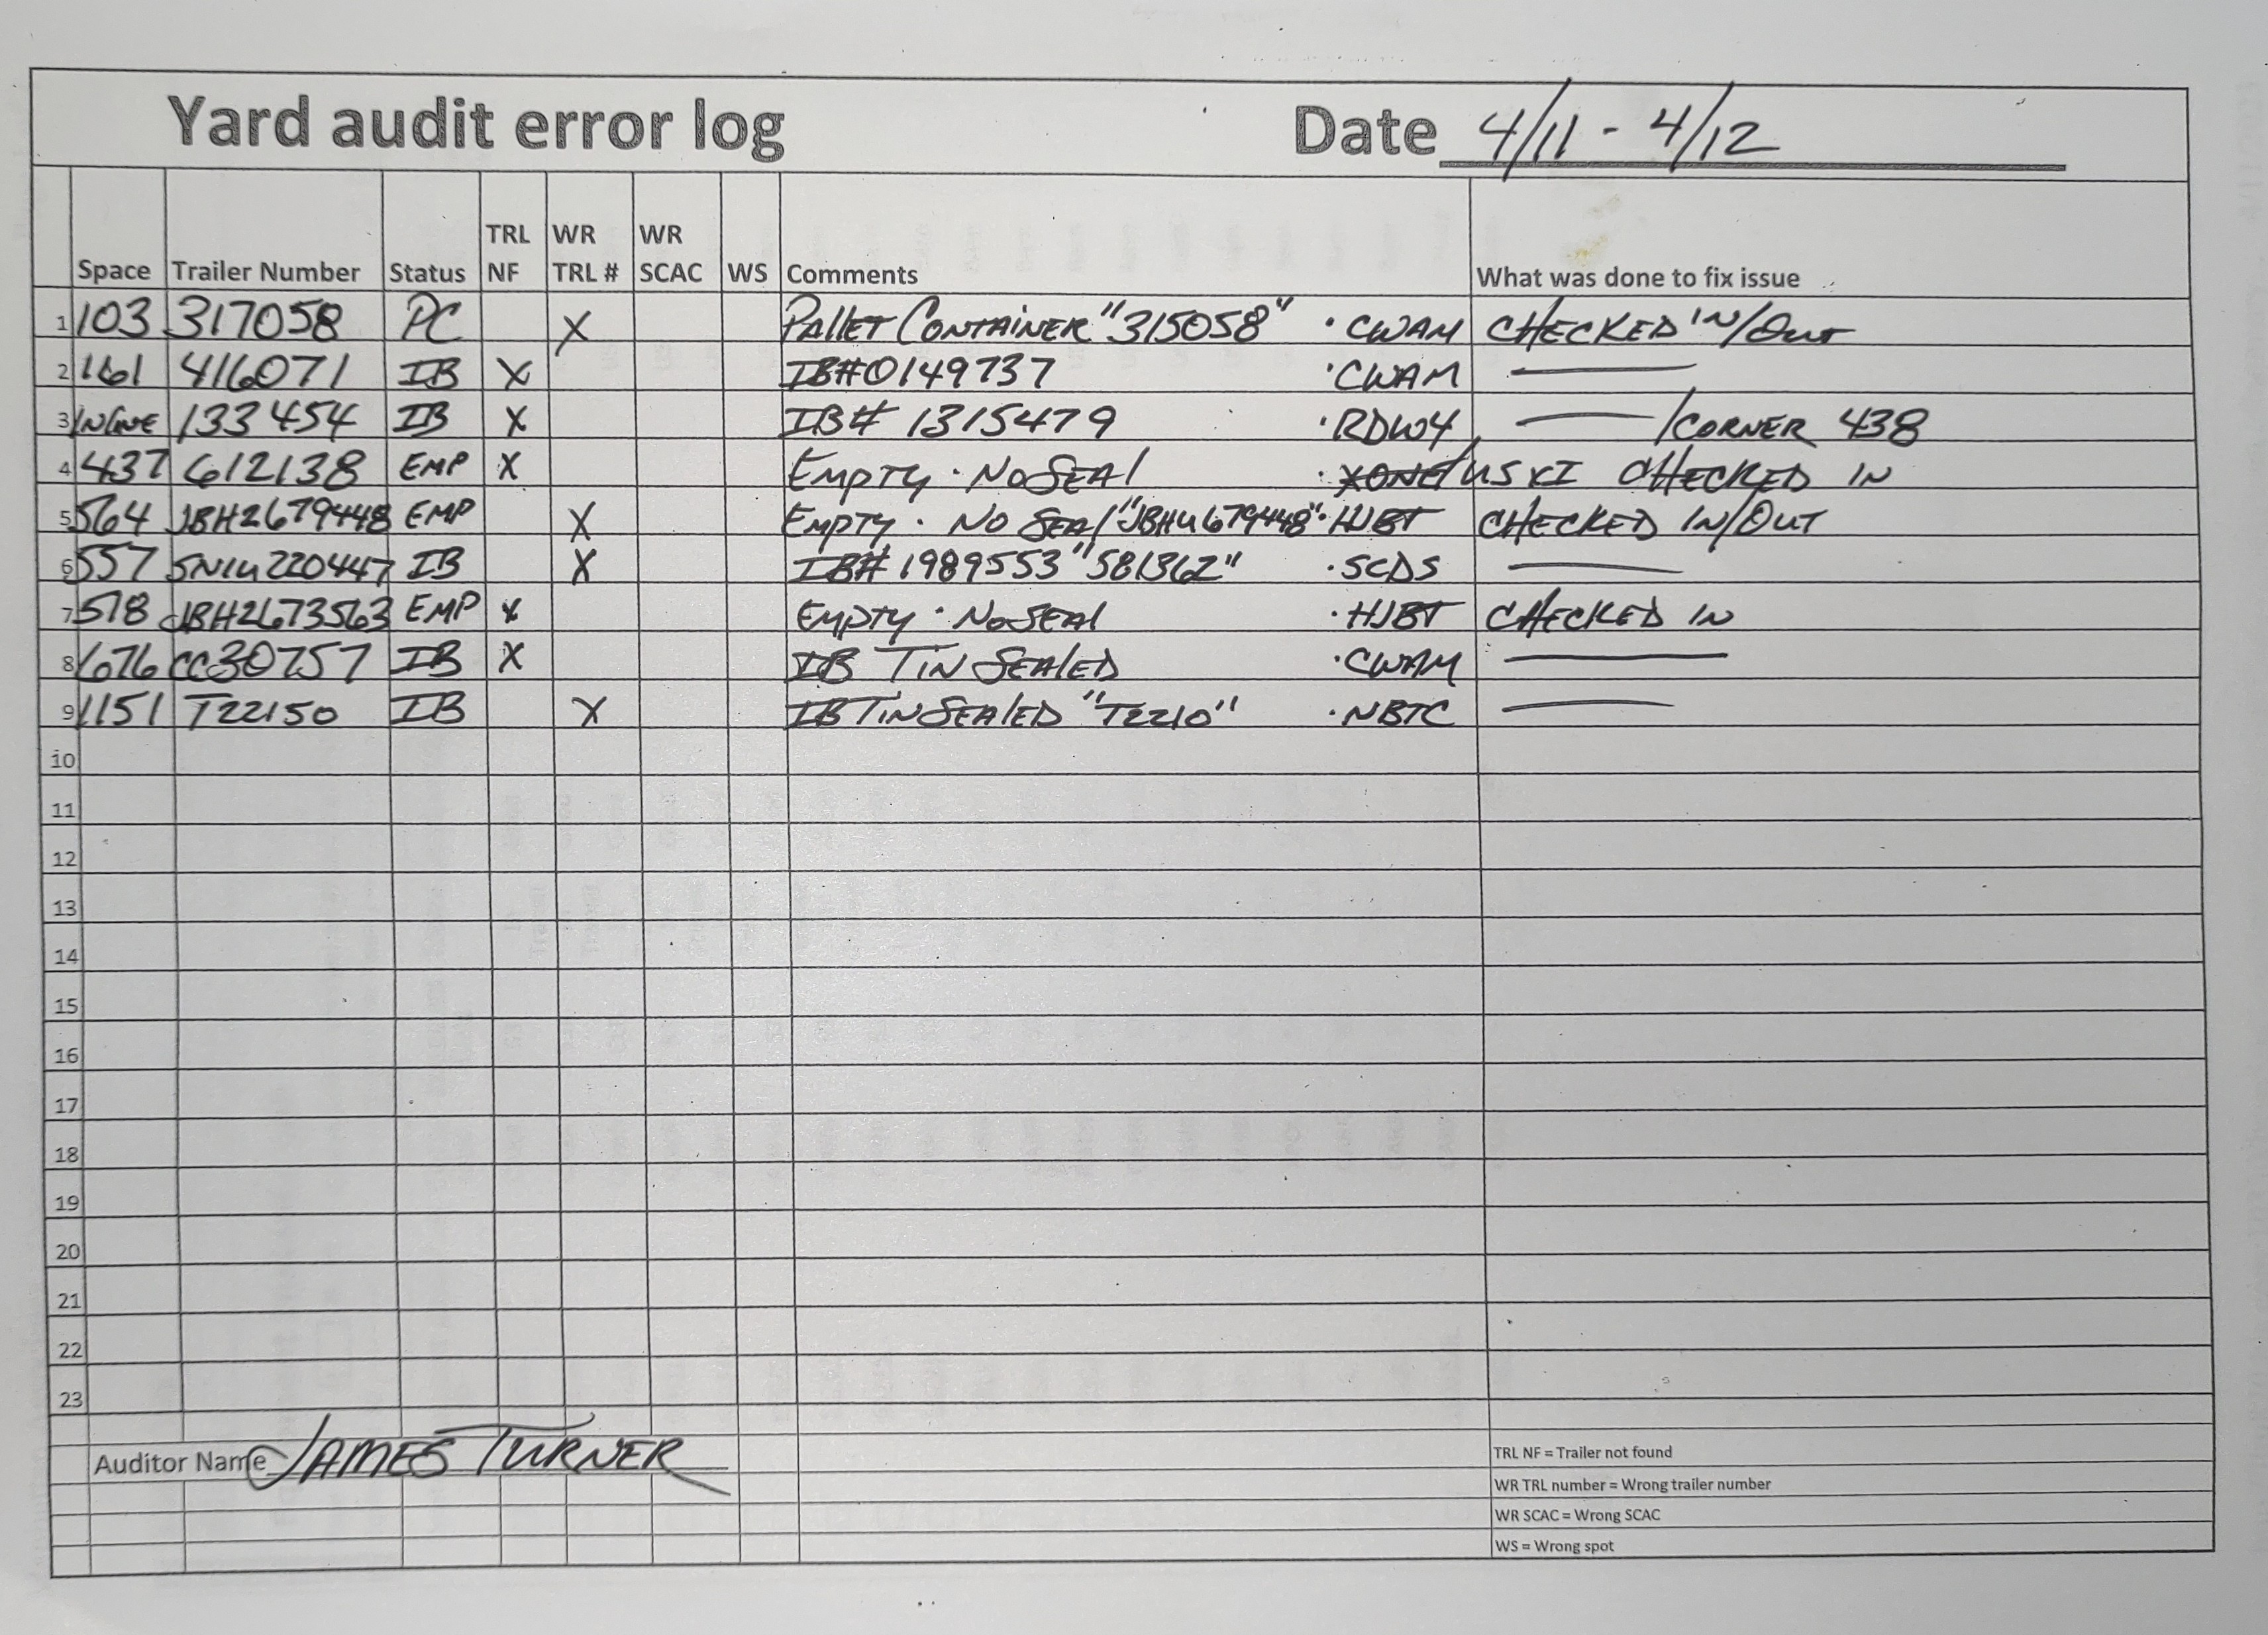 Yard audit error log Date 4/11 - 4/12
Space Trailer Number Status TRL NF WR TRL # WR SCAC WS Comments What was done to fix issue
1 103 317058 PC X PALLET CONTAINER "315058" · CWAM CHECKED IN/OUT
2 161 416071 IB X IB# 0149737 · CWAM —
3 INLINE 133454 IB X IB# 1315479 · RDW4 — /CORNER 438
4 437 612138 EMP X EMPTY · NO SEAL · USXI CHECKED IN
5 564 JBH2679448 EMP X EMPTY · NO SEAL "JBHU679448" · HJBT CHECKED IN/OUT
6 557 SNLU220447 IB X IB# 1989553 "581362" · SCDS —
7 518 JBH2673563 EMP X EMPTY · NO SEAL · HJBT CHECKED IN
8 1676 CC30757 IB X IB TIN SEALED · CWAM —
9 1151 T22150 IB X IB TIN SEALED "T2210" · NBTC —
10
11
12
13
14
15
16
17
18
19
20
21
22
23
Auditor Name JAMES TURNER
TRL NF = Trailer not found
WR TRL number = Wrong trailer number
WR SCAC = Wrong SCAC
WS = Wrong spot